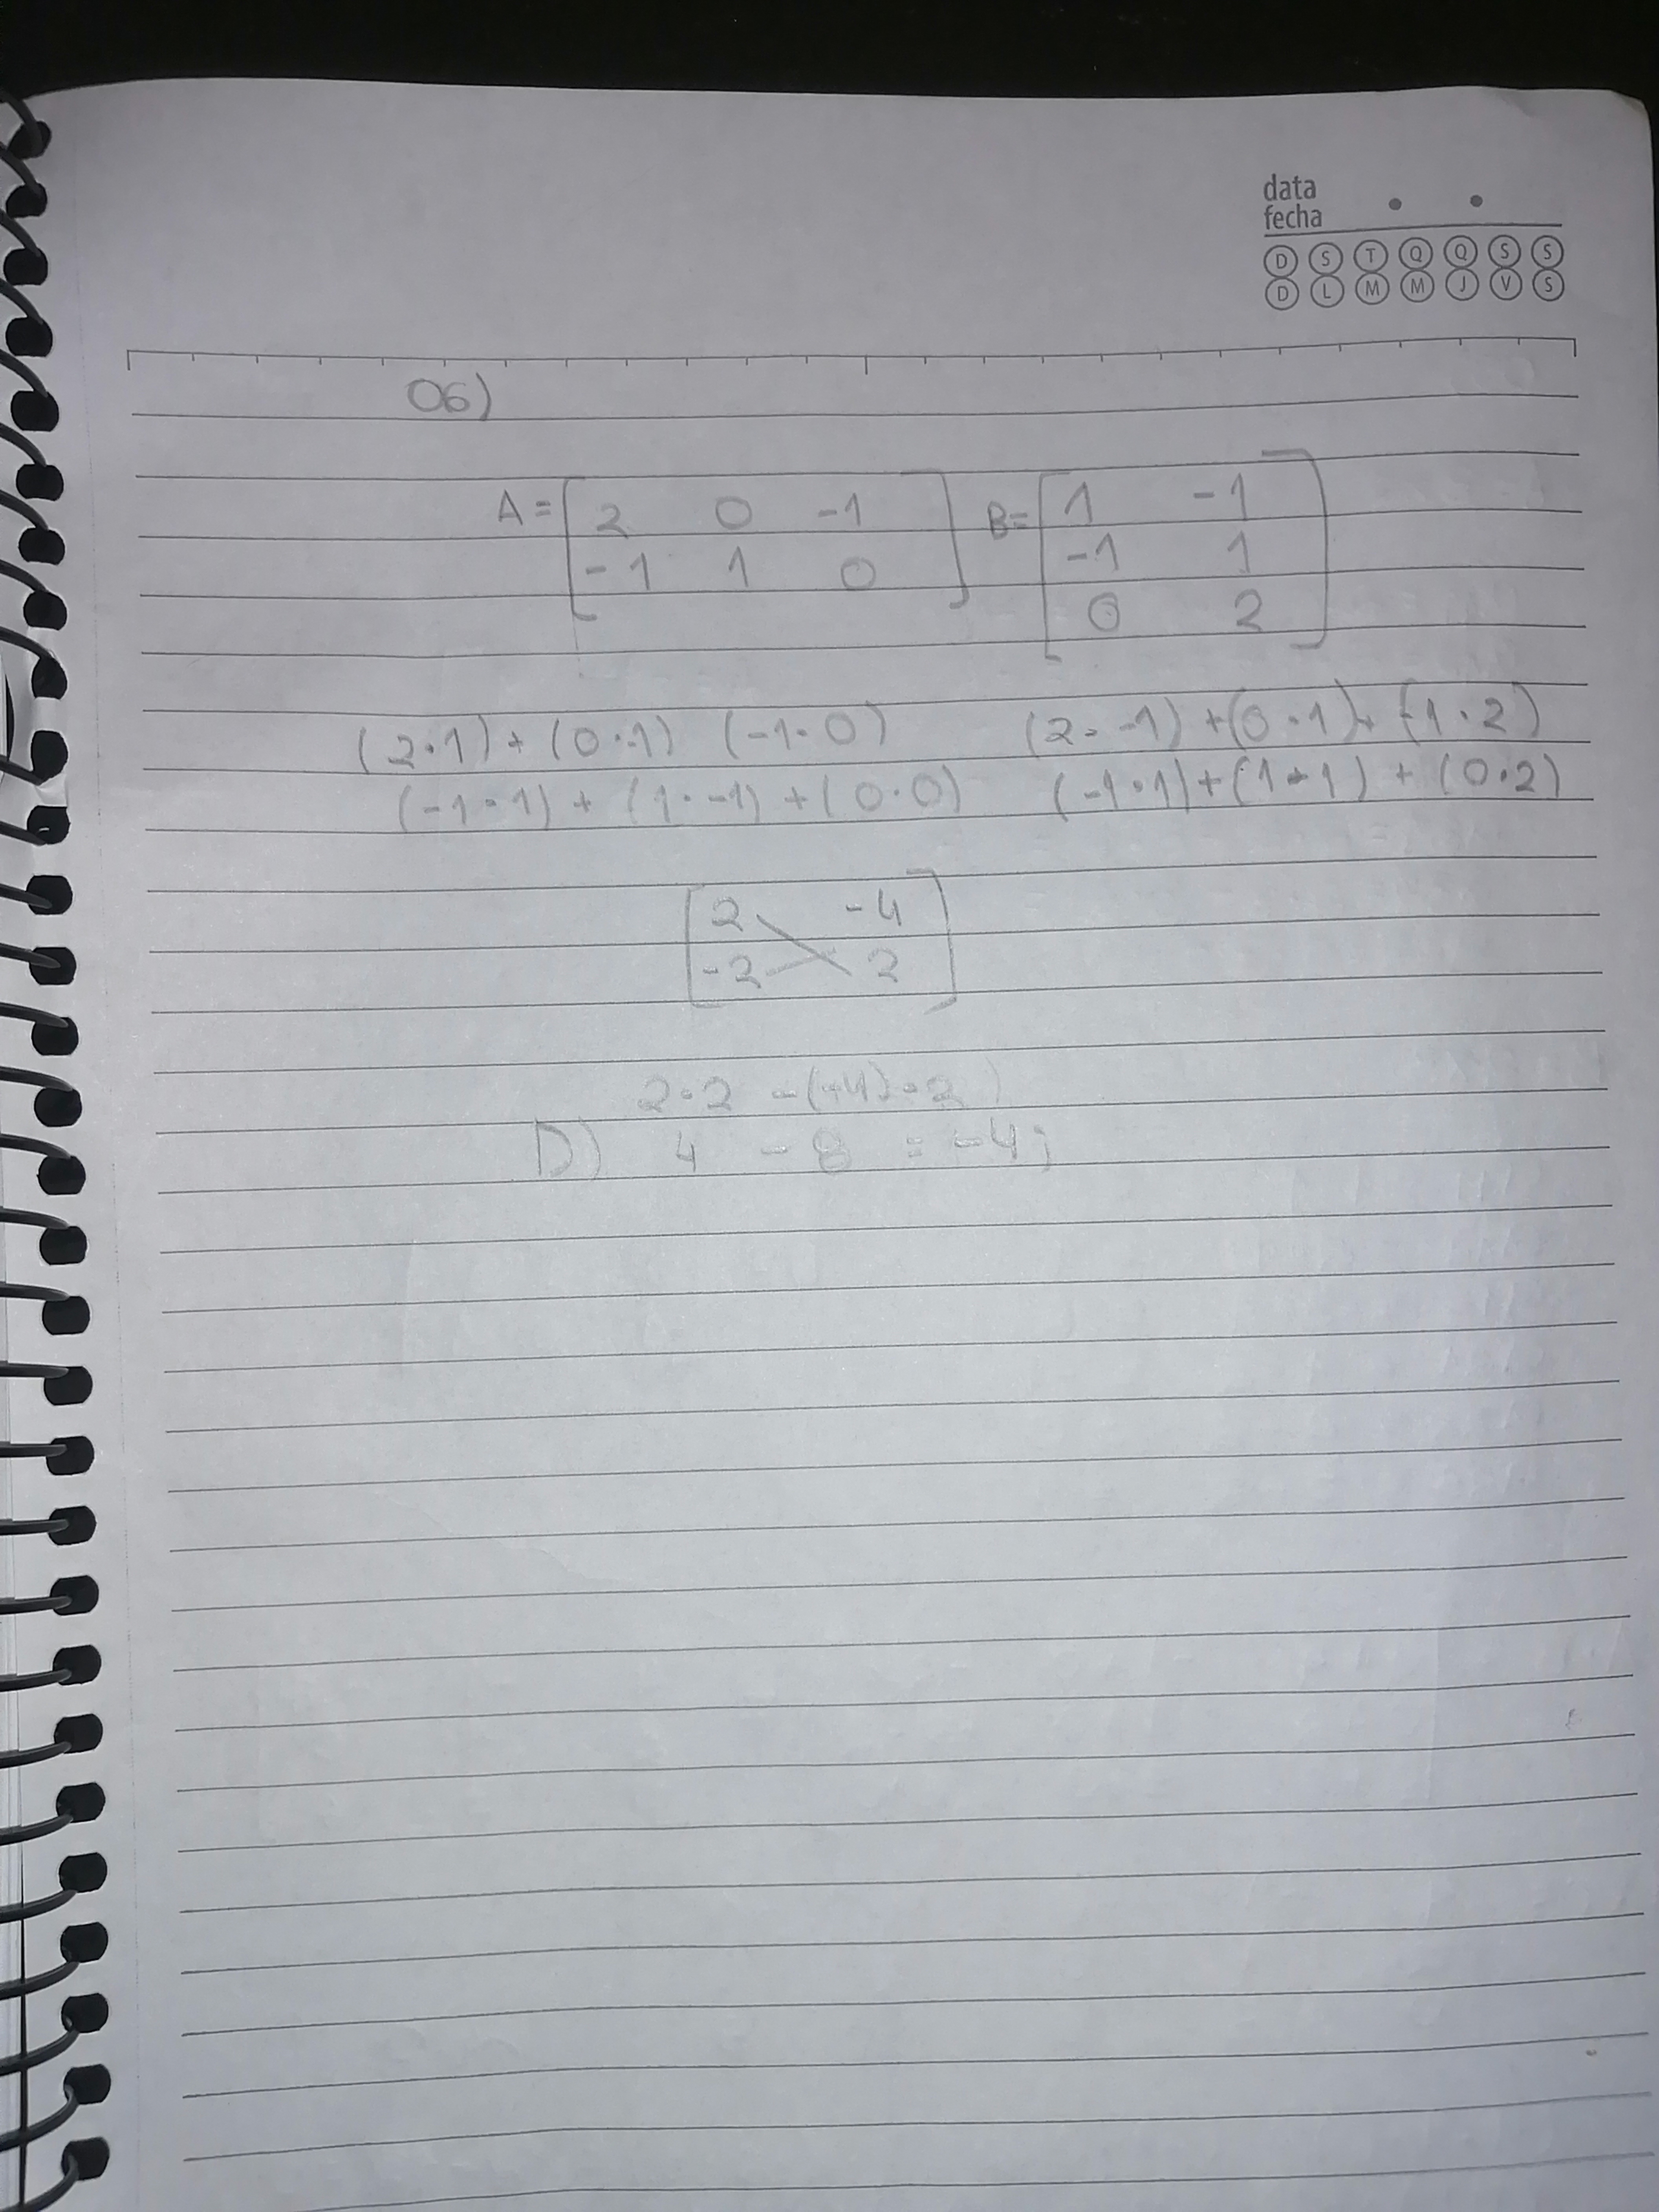 data
fecha
D S T Q Q S S
D L M M J V S
06)
A = [ 2 0 -1 ] B= [ 1 -1 ]
-1 1 0 -1 1
0 2
(2·1) + (0·-1) (-1·0) (2·-1) + (0·1) + (-1·2)
(-1·1) + (1·-1) + (0·0) (-1·1) + (1·1) + (0·2)
[ 2 -4 ]
-2 2
2·2 -(-4)·2)
D) 4 - 8 = -4;